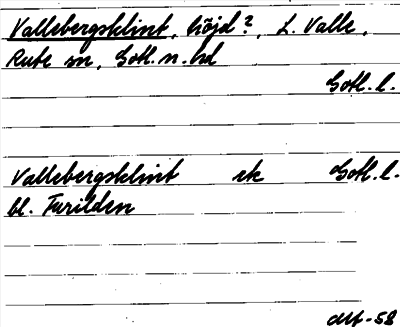 Vallebergsklint, höjd?, L. Valle,
Rute sn, Gotl. n. hd
Gotl. l.
Vallebergsklint ek Gotl. l.
bl. Furilden
-58